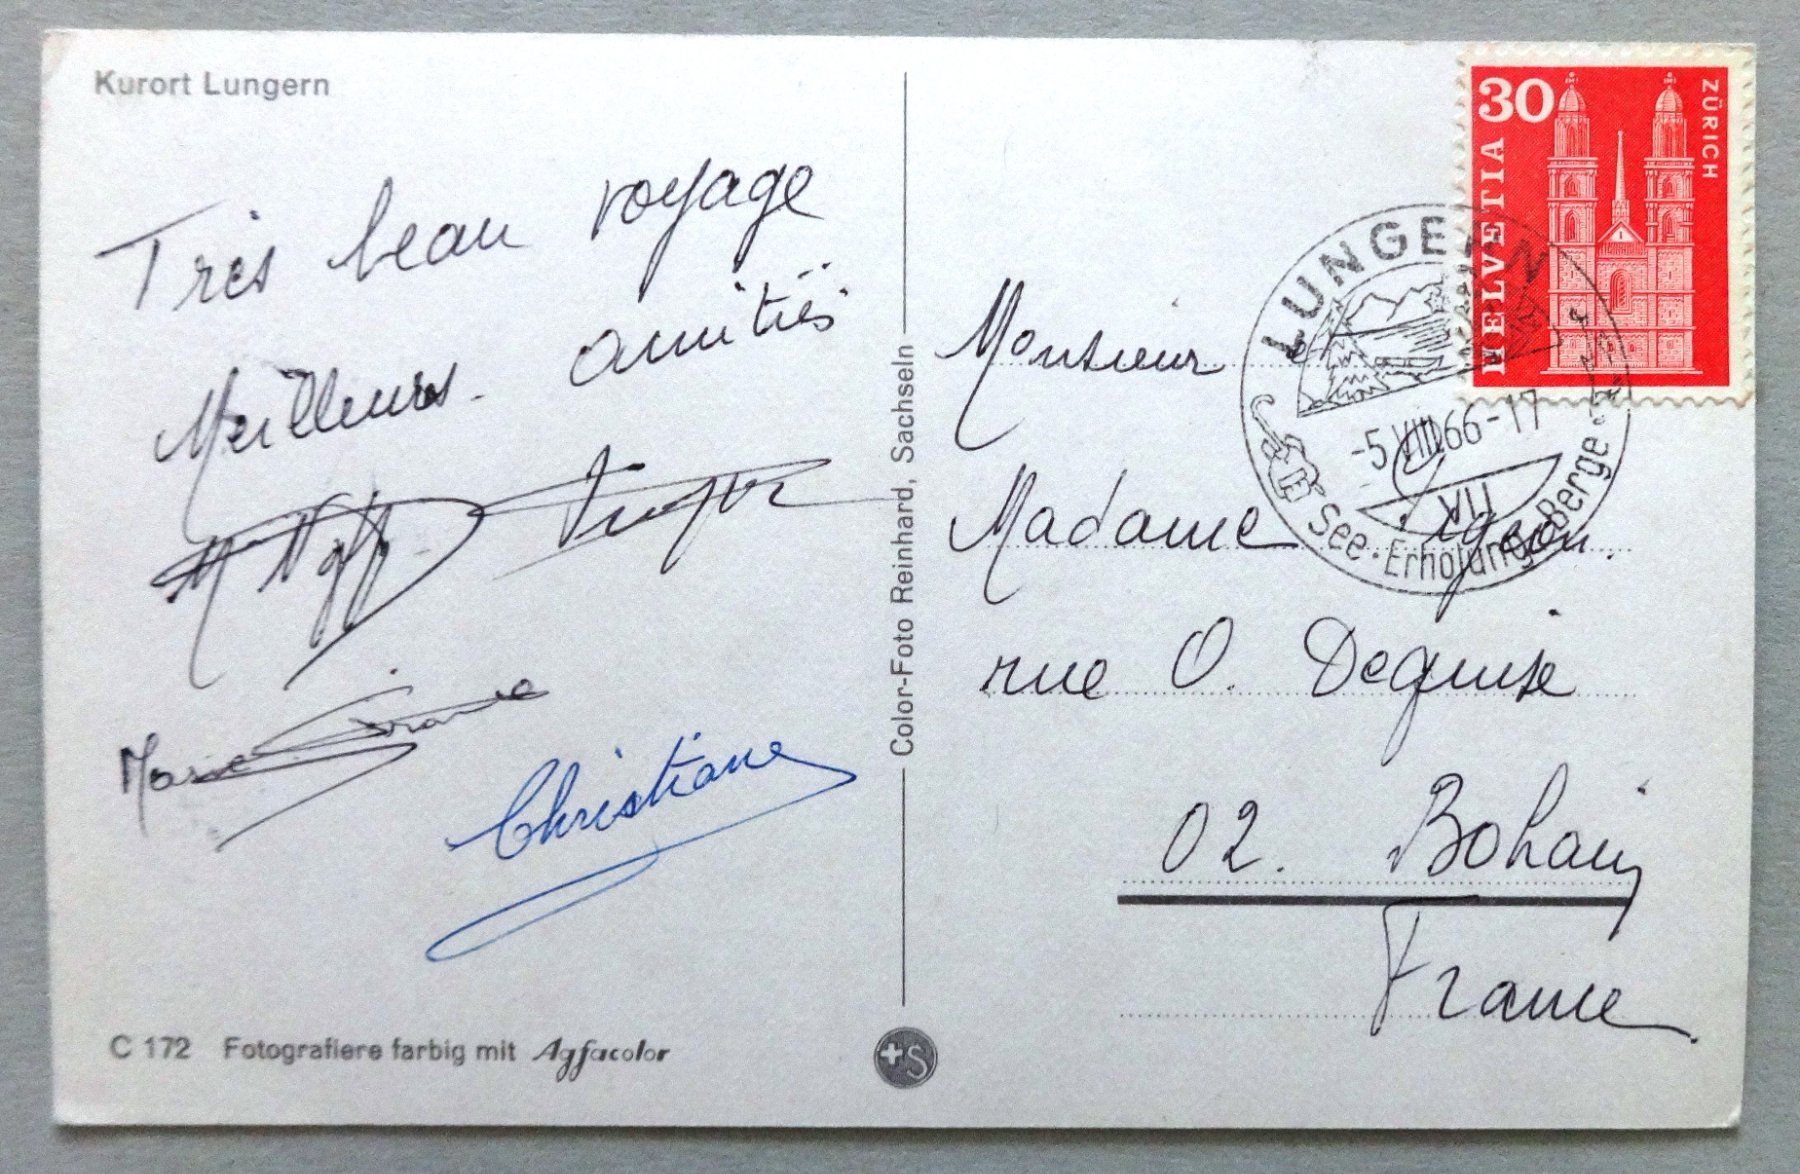 Kurort Lungern
Très beau voyage
Meilleurs amitiés
Marie France
Christiane
C 172 Fotografiere farbig mit Agfacolor
Color-Foto Reinhard, Sachseln
+S
30
HELVETIA
ZÜRICH
LUNGERN
-5.VIII.66-17
VII
See · Erholung · Berge ·
Monsieur et
Madame
rue O. Deguise
02. Bohain
France